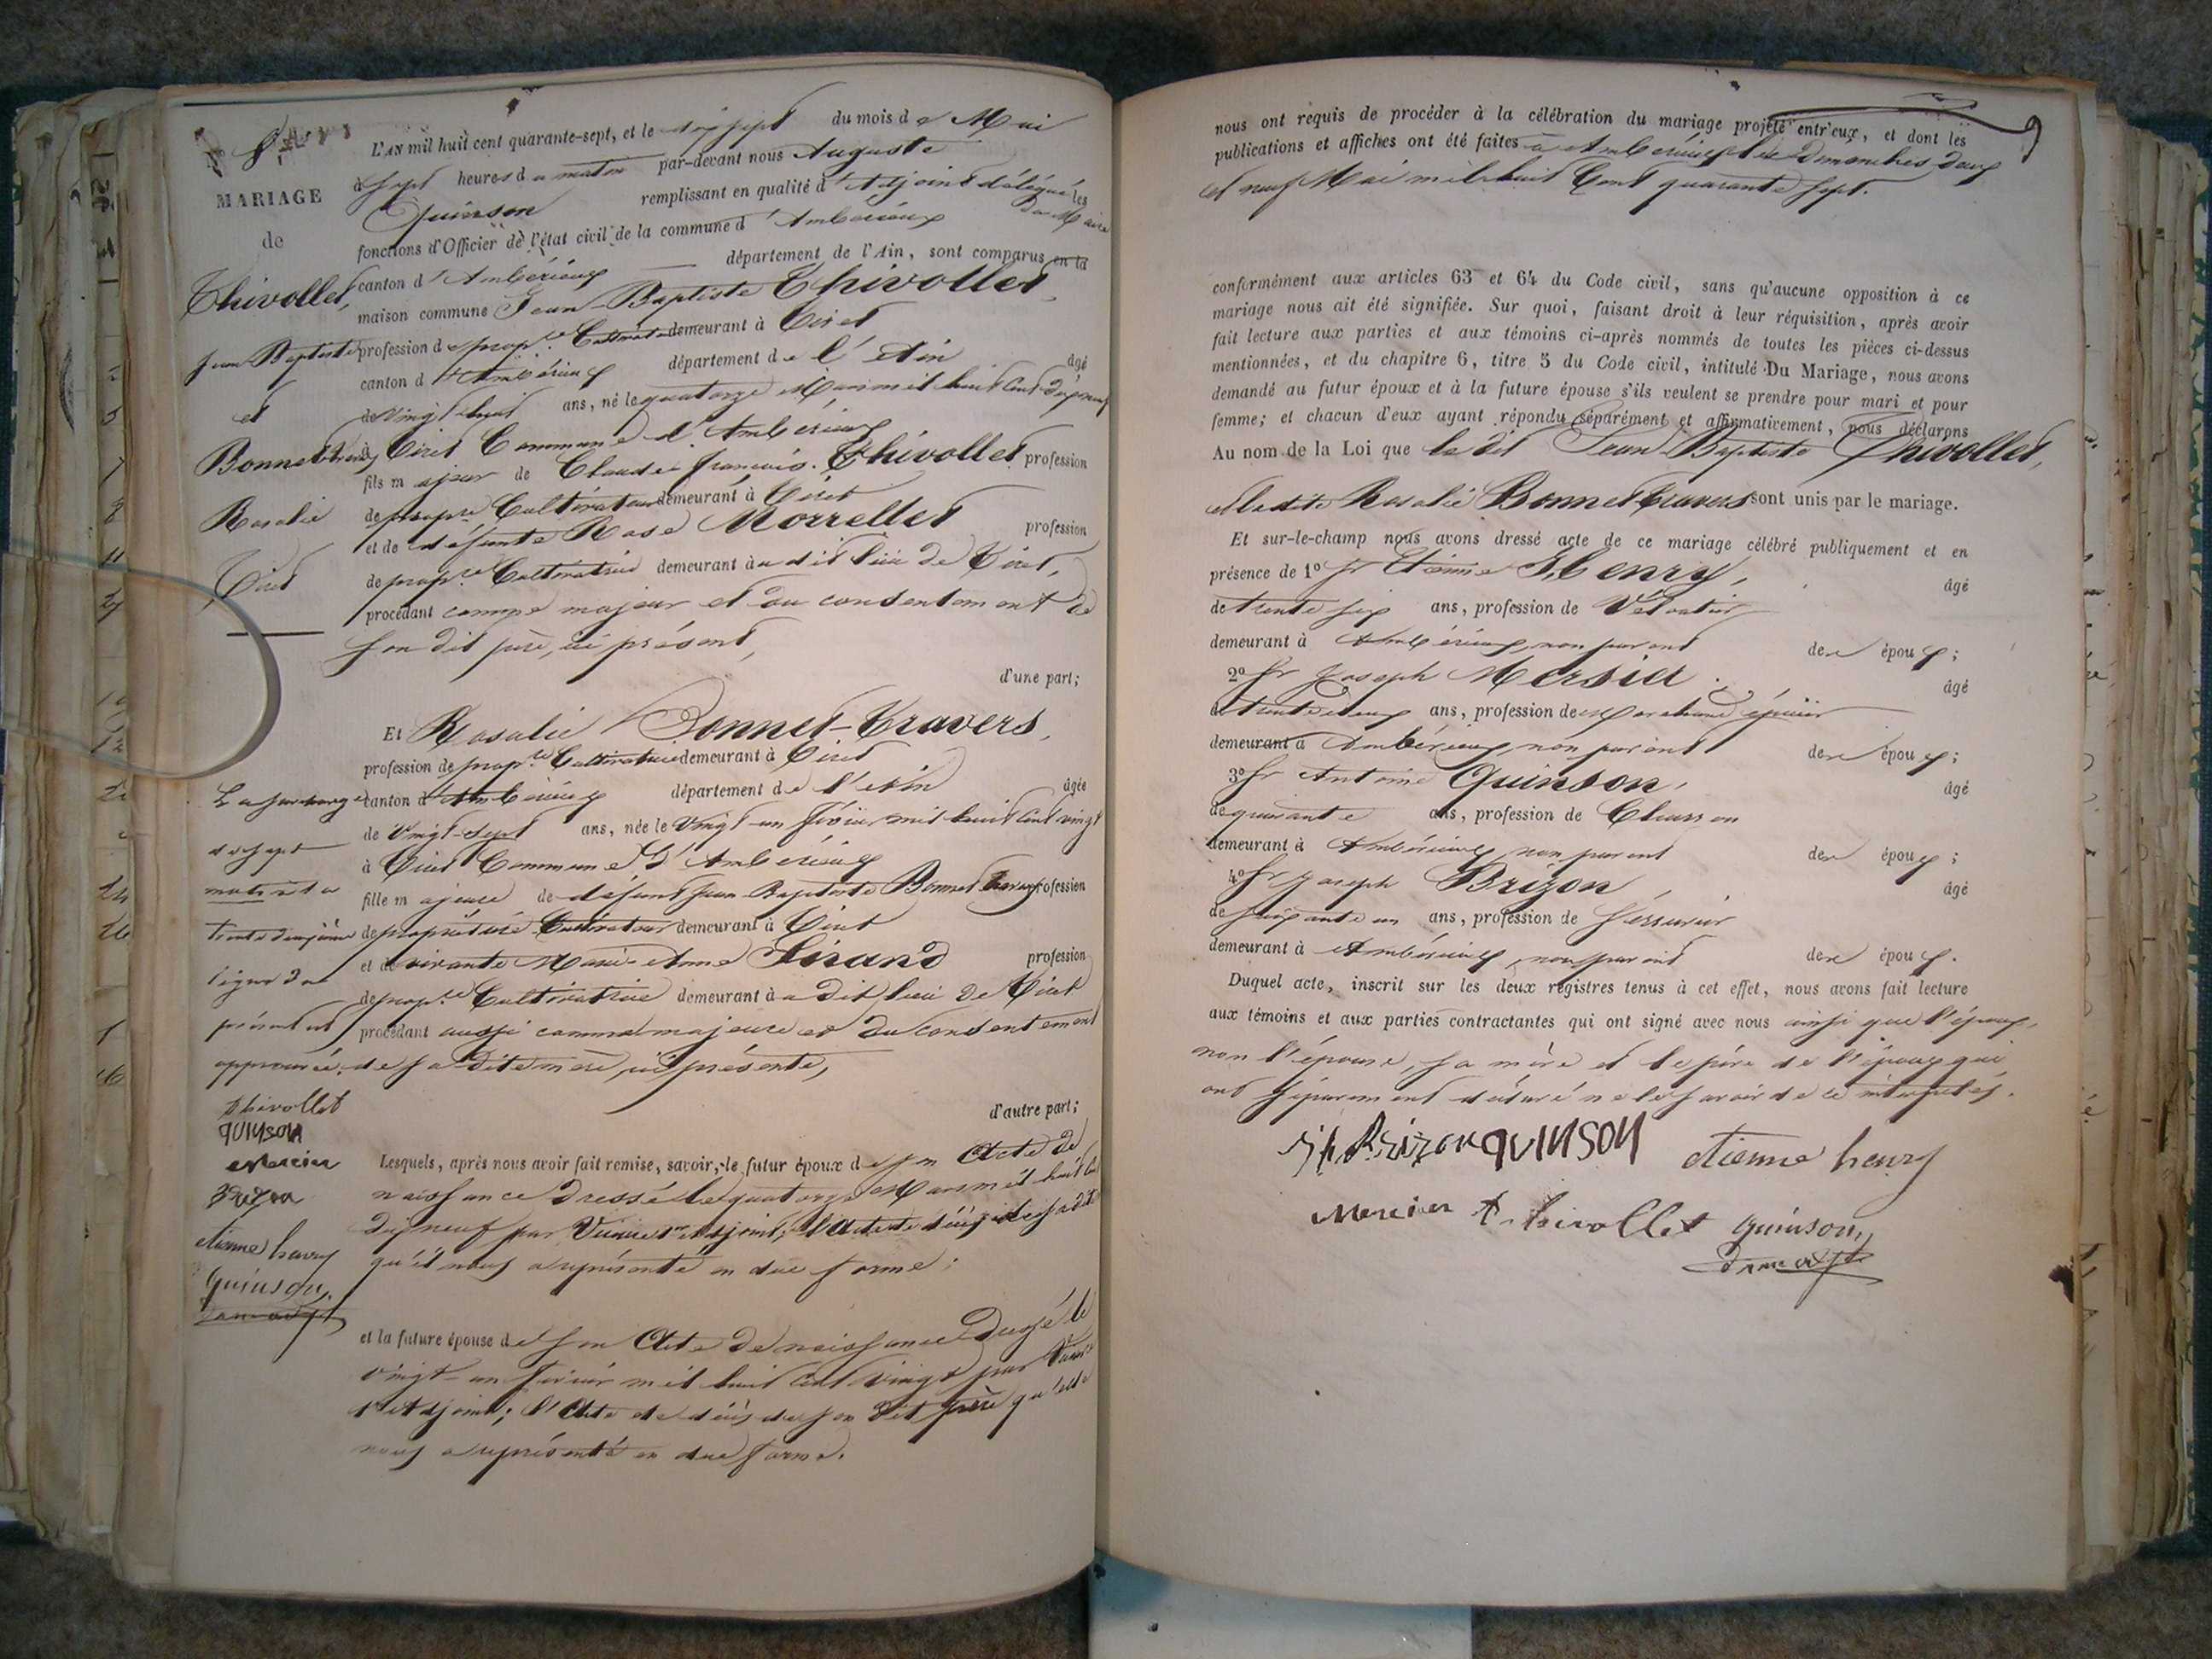 N° 8
MARIAGE
de
Thivollet,
Jean Baptiste
et
Bonnet-Travers
Rosalie
Tiret
La surcharge
de sept
trente deuxième
ligne du
présent est
approuvée.
thivollet
QUINSON
Mercier
Brizon
etienne henry
Quinson,
L'AN mil huit cent quarante-sept, et le dix sept du mois de Mai
à sept heures du matin par-devant nous Auguste
Quinson remplissant en qualité d'Adjoint délégué les
du Maire
fonctions d'Officier de l'état civil de la commune d'Ambérieux
canton d'Ambérieux département de l'Ain, sont comparus en la
maison commune Jean Baptiste Thivollet,
profession de prop.re Cultivateur demeurant à Tiret
canton d'Ambérieux département de l'Ain âgé
de vingt huit ans, né le quatorze Mars mil huit Cent dix neuf
à Tiret Commune d'Ambérieux
fils majeur de Claude François Thivollet profession
de prop.re Cultivateur demeurant à Tiret
et de défunte Rose Morrellet profession
de prop.re Cultivatrice demeurant au dit lieu de Tiret,
procédant comme majeur et du consentement de
son dit père, ici présent,
d'une part;
Et Rosalie Bonnet-Travers,
profession de prop.re Cultivatrice demeurant à Tiret
canton d'Ambérieux département de l'Ain âgée
de vingt-sept ans, née le vingt un février mil huit cent vingt
à Tiret Commune d'Ambérieux
fille majeure de défunt Jean Baptiste Bonnet Travers profession
de propriétaire Cultivateur demeurant à Tiret
et de vivante Marie-Anne profession
de prop.re Cultivatrice demeurant au dit lieu de Tiret
procédant aussi comme majeure et du consentement
de sa dite mère, ici présente,
d'autre part;
Lesquels, après nous avoir fait remise, savoir, le futur époux de son Acte de
naissance dressé le quatorze Mars mil huit Cent
dix neuf par 1er Adjoint; l'Acte de décès de sa dite
qu'il nous a représenté en due forme;
et la future épouse de son Acte de naissance dressé le
vingt-un février mil huit cent vingt par
1er Adjoint; l'Acte de décès de son dit père qu'elle
nous a représenté en due forme.
nous ont requis de procéder à la célébration du mariage projeté entr'eux, et dont les
publications et affiches ont été faites à Ambérieux les Dimanches deux
et neuf Mai mil huit Cent quarante sept.
conformément aux articles 63 et 64 du Code civil, sans qu'aucune opposition à ce
mariage nous ait été signifiée. Sur quoi, faisant droit à leur réquisition, après avoir
fait lecture aux parties et aux témoins ci-après nommés de toutes les pièces ci-dessus
mentionnées, et du chapitre 6, titre 5 du Code civil, intitulé Du Mariage, nous avons
demandé au futur époux et à la future épouse s'ils veulent se prendre pour mari et pour
femme; et chacun d'eux ayant répondu séparément et affirmativement, nous déclarons
Au nom de la Loi que le dit Jean Baptiste Thivollet,
et la dite Rosalie Bonnet Travers sont unis par le mariage.
Et sur-le-champ nous avons dressé acte de ce mariage célébré publiquement et en
présence de 1° Sr Etienne Henry, âgé
de trente six ans, profession de
demeurant à Ambérieux, non parent des époux;
2° Sr Joseph Mersier. âgé
de trente deux ans, profession de Marchand épicier
demeurant à Ambérieux, non parent des époux;
3° Sr Antoine Quinson, âgé
de quarante ans, profession de
demeurant à Ambérieux, non parent des époux;
4° Sr Joseph Brizon, âgé
de soixante un ans, profession de Serrurier
demeurant à Ambérieux, non parent des époux.
Duquel acte, inscrit sur les deux registres tenus à cet effet, nous avons fait lecture
aux témoins et aux parties contractantes qui ont signé avec nous ainsi que l'époux,
non l'épouse, sa mère et le père de l'époux qui
ont séparément déclaré ne le savoir de ce interpellés.
Brizon QUINSON etienne henry
Mercier thivollet Quinson,